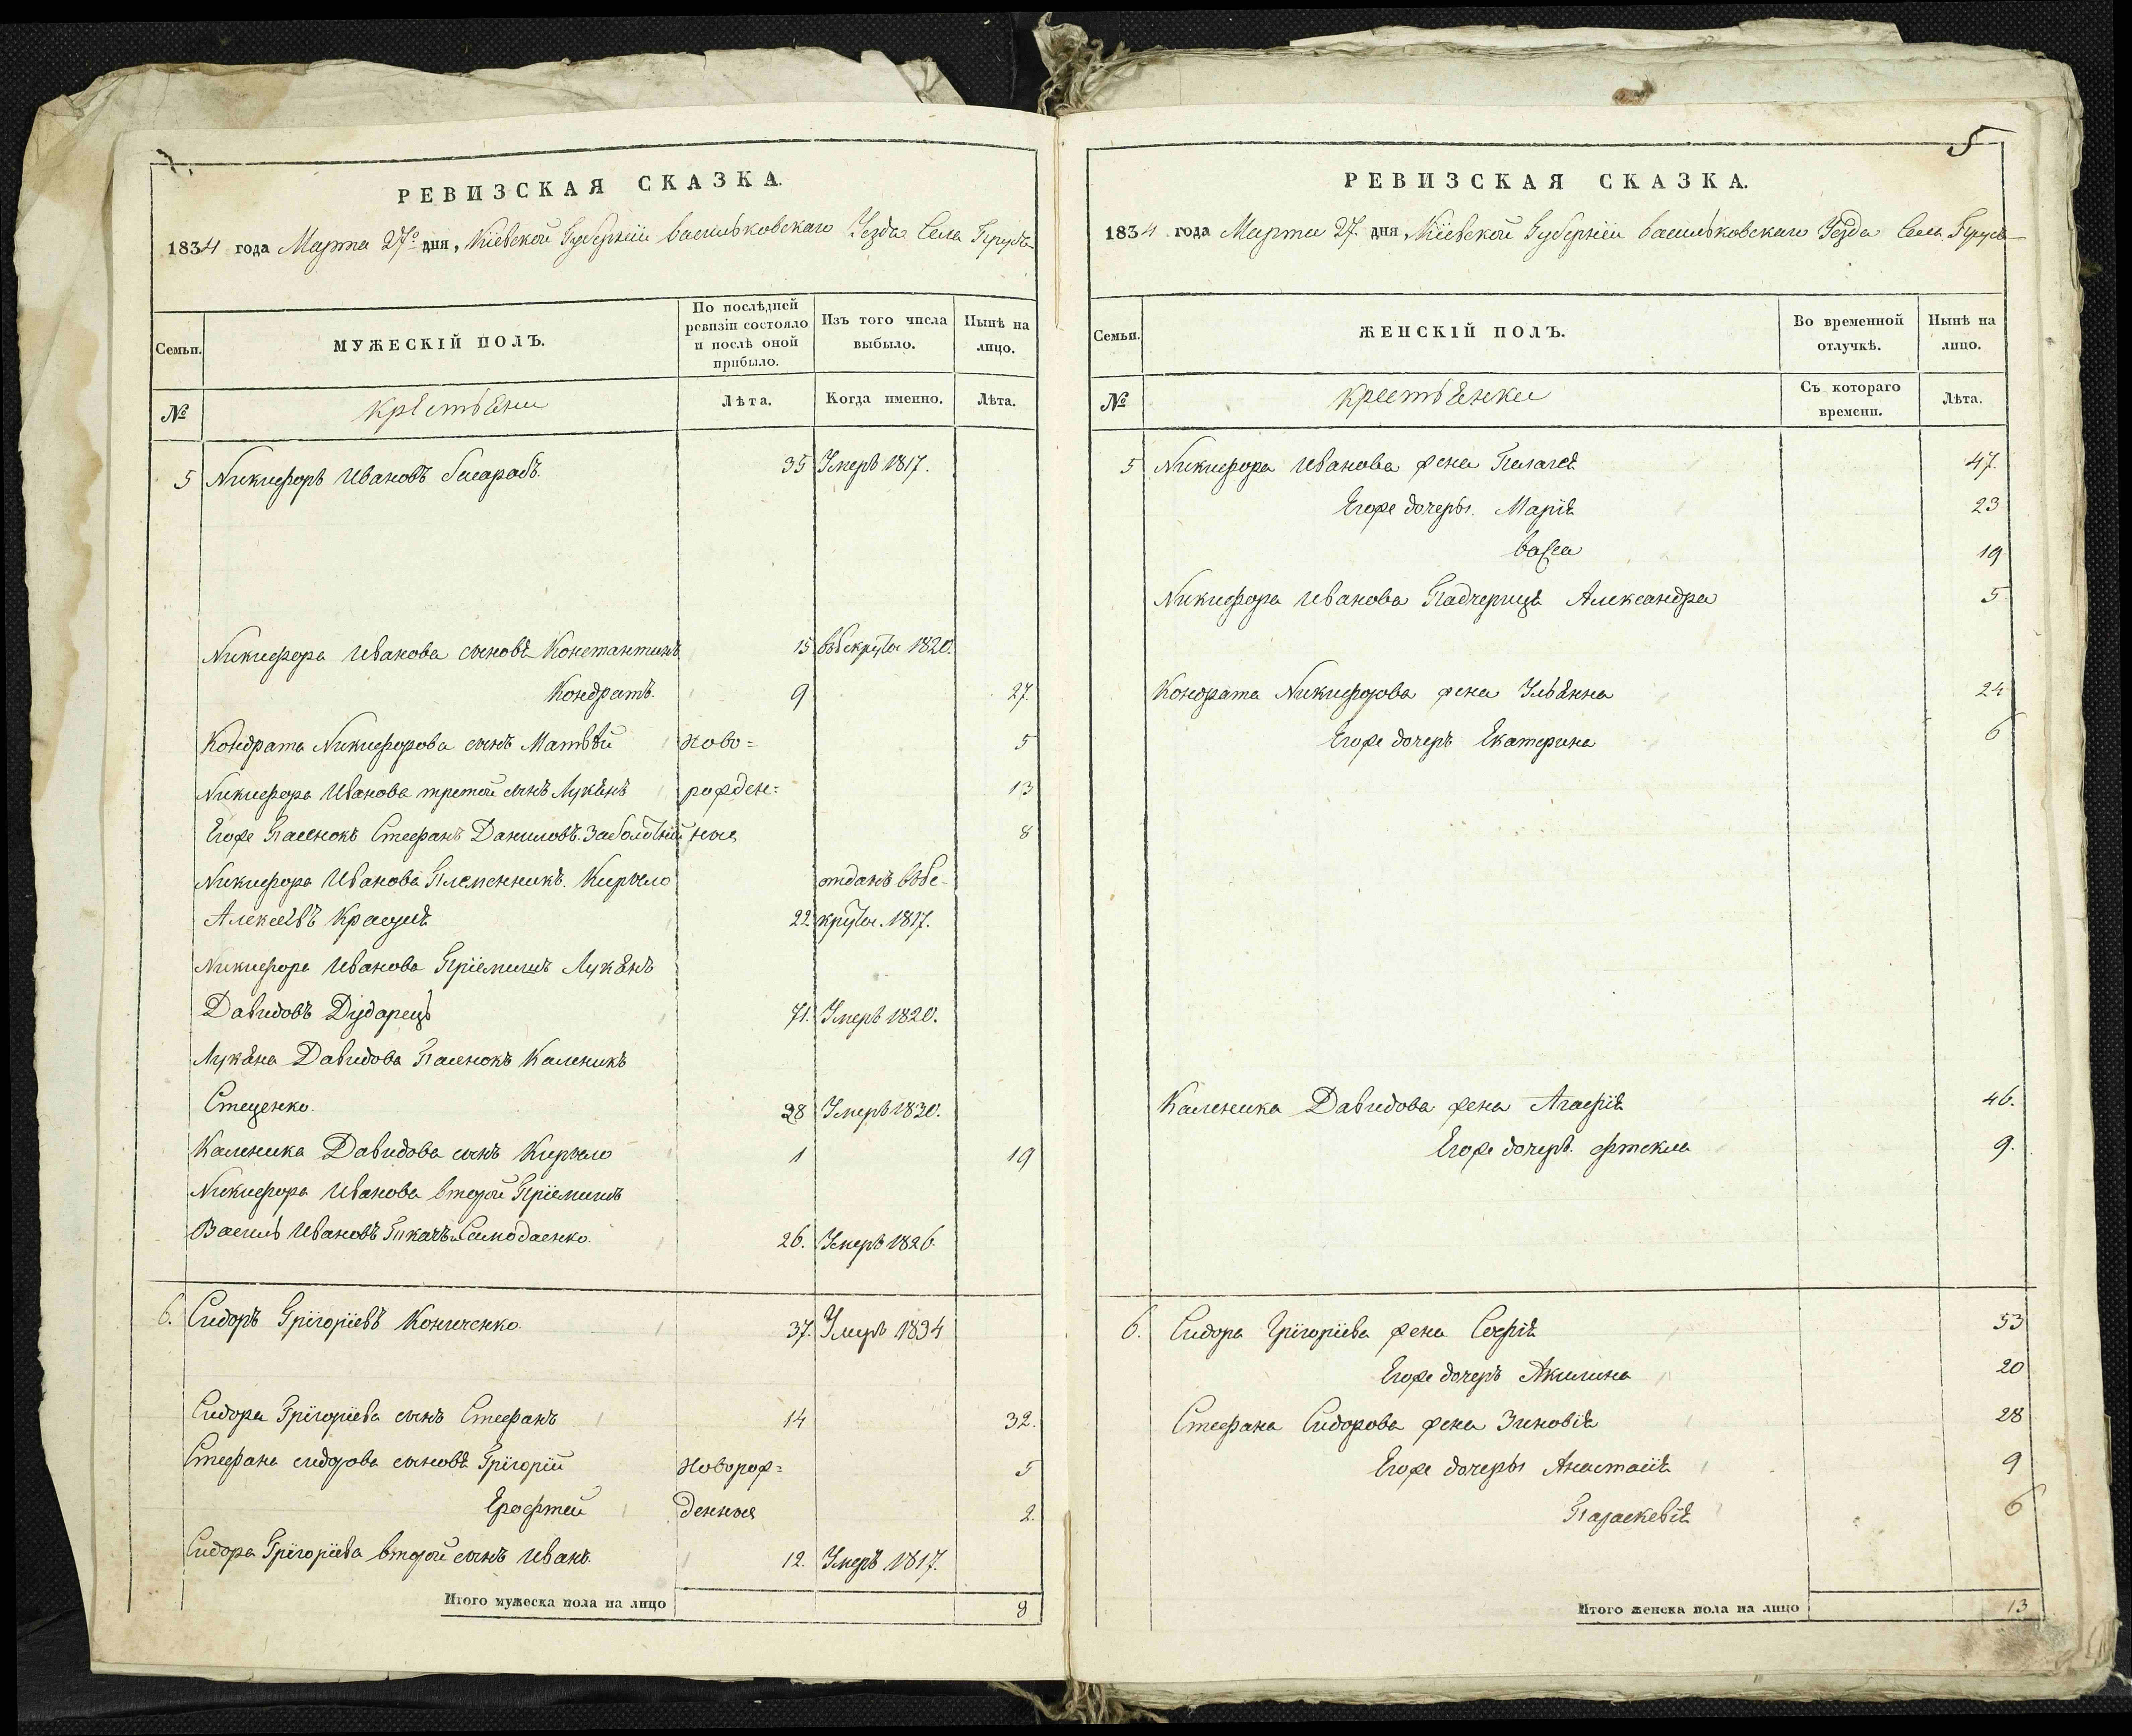 РЕВИЗСКАЯ СКАЗКА.
1834 года Марта 27го дня, Кіевской Губерніи Васильковскаго Уезда Села
Семьи.
МУЖЕСКІЙ ПОЛЪ.
По послѣдней ревизіи состояло и послѣ оной прибыло.
Изъ того числа выбыло.
Нынѣ на лицо.
№
крестьяни
Лѣта.
Когда именно.
Лѣта.
5 Никифоръ Ивановъ Басарабъ. 35 Умеръ 1817.
Никифора Иванова сыновѣ Константинъ 15 1820.
Кондратъ. 9 27.
Кондрата Никифорова сынъ Матвѣй ново= 5
Никифора Иванова третой сынъ Лукянъ рожден= 13
Егоже Пасенокъ Стефанъ Даниловъ Заболотній ныя 8
Никифора Иванова Племенникъ Кирило отданъ въ ре-
Алексѣевъ 22 круты 1817.
Никифора Иванова Пріемишъ Лукянъ
Давидовъ Дударецъ 71. Умеръ 1820.
Лукяна Давидова Пасенокъ Каленикъ
Стеценко. 28 Умеръ 1830.
Каленика Давидова сынъ Кирило 1 19
Никифора Иванова второй Пріемишъ
Василь Ивановъ Ткачъ Самодаенко. 26. Умеръ 1826.
6. Сидоръ Григоріевъ Кониченко. 37. Умеръ 1834
Сидора Григоріева сынъ Стефанъ 14 32.
Стефана Сидорова сыновѣ Григорій Новорож= 5
Ерофтей денныя 2.
Сидора Григоріева второй сынъ Иванъ. 12. Умеръ 1817.
Итого мужеска пола на лицо 8
5
РЕВИЗСКАЯ СКАЗКА.
1834 года Марта 27. дня Кіевской Губерніи Васильковскаго Уезда Села
Семьи.
ЖЕНСКІЙ ПОЛЪ.
Во временной отлучкѣ.
Нынѣ на лицо.
№
крестьянки
Съ котораго времени.
Лѣта.
5 Никифора Иванова жена Пелагея 47.
Егоже дочеры. Марія 23
Васса 19
Никифора Иванова Падчерица Александра 5
Кондрата Никифорова жена Ульянна 24
Егоже дочеръ Екатерина 6
Каленика Давидова жена Агафія 46.
Егоже дочеръ. Фтекла 9.
6. Сидора Григоріева жена Софія 53
Егоже дочеръ Акилина 20
Стефана Сидорова жена Зиновія 28
Егоже дочеры Анастасія 9
Параскевія 6
Итого женска пола на лицо 13